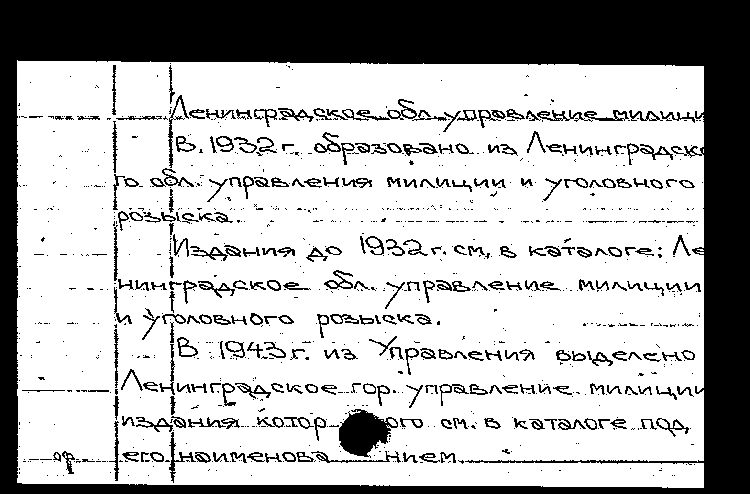 Ленинградское обл. управление милици
В. 1932 г. образовано из Ленинградско
го обл. управления милиции и уголовного
розыска.
Издания до 1932 г. см. в каталоге: Ле
нинградское обл. управление милиции
и уголовного розыска.
В 1943 г. из Управления выделено
Ленинградское гор. управление милиции
издания котор ого см. в каталоге под
его наименова нием.